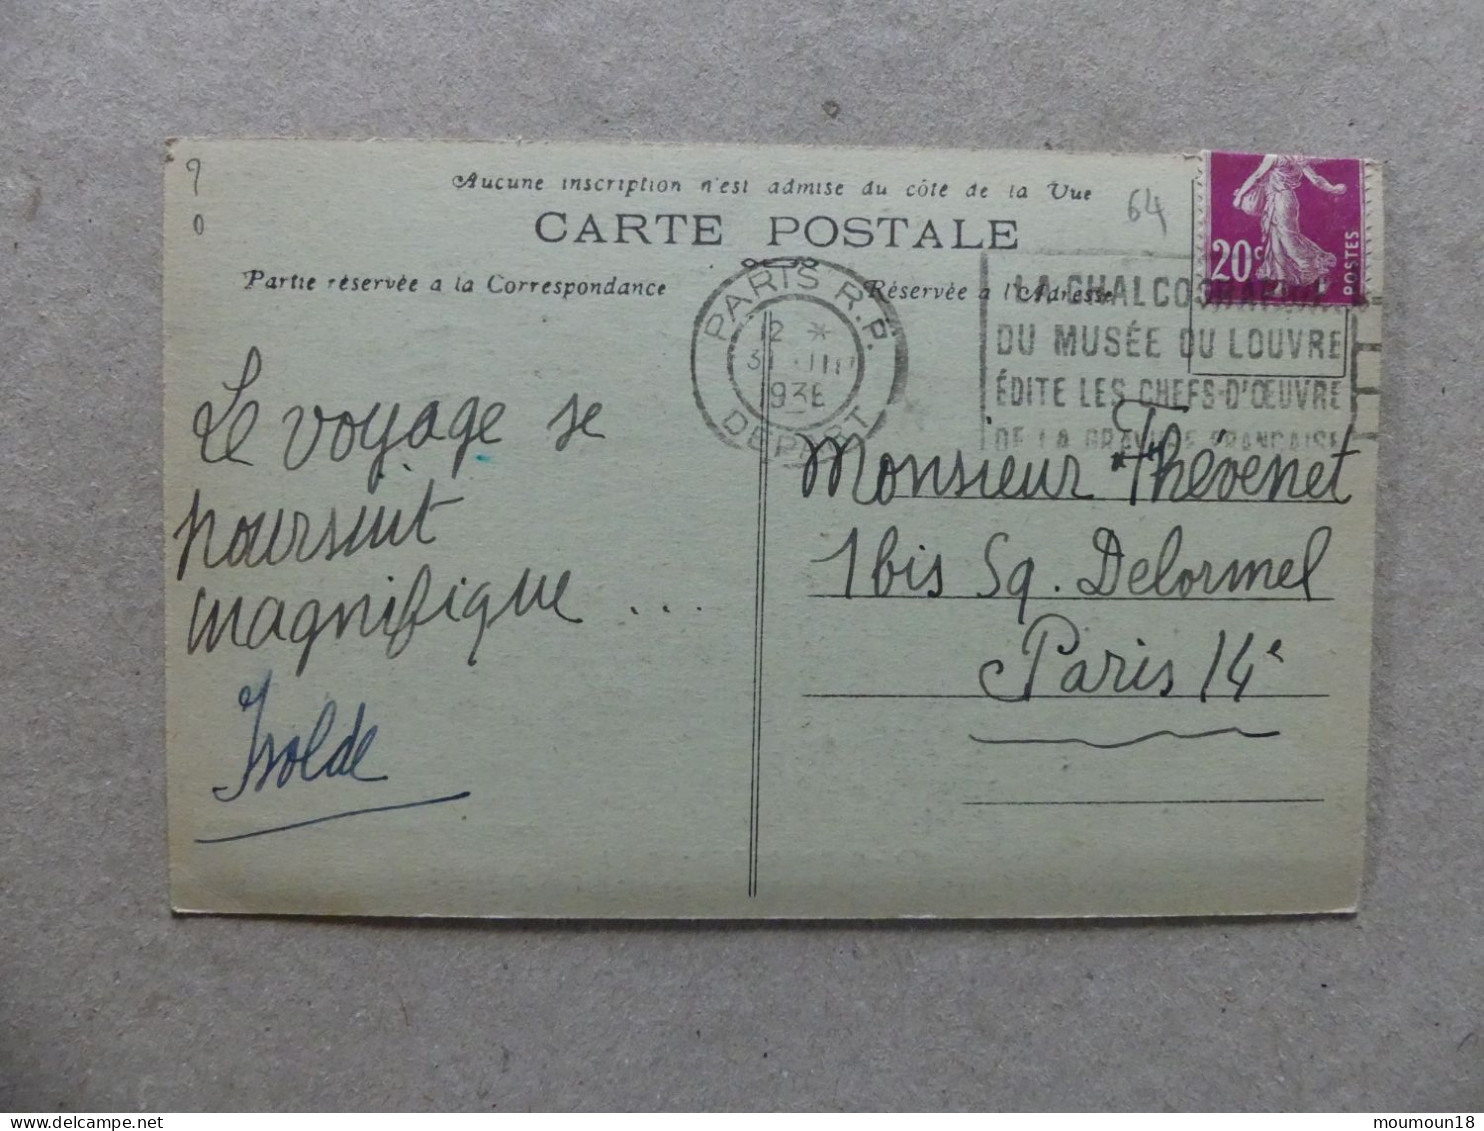 Aucune inscription n'est admise du côté de la Vue
CARTE POSTALE
64
Partie réservée a la Correspondance
Réservée a l'Adresse
20c
POSTES
PARIS R.P.
12 *
31 III
1936
DEPART
LA CHALCOGRAPHIE
DU MUSÉE DU LOUVRE
ÉDITE LES CHEFS-D'ŒUVRE
DE LA GRAVURE FRANÇAISE
Le voyage se
poursuit
magnifique ...
Isolde
Monsieur Thévenet
1 bis Sq. Delormel
Paris 14e
moumoun18